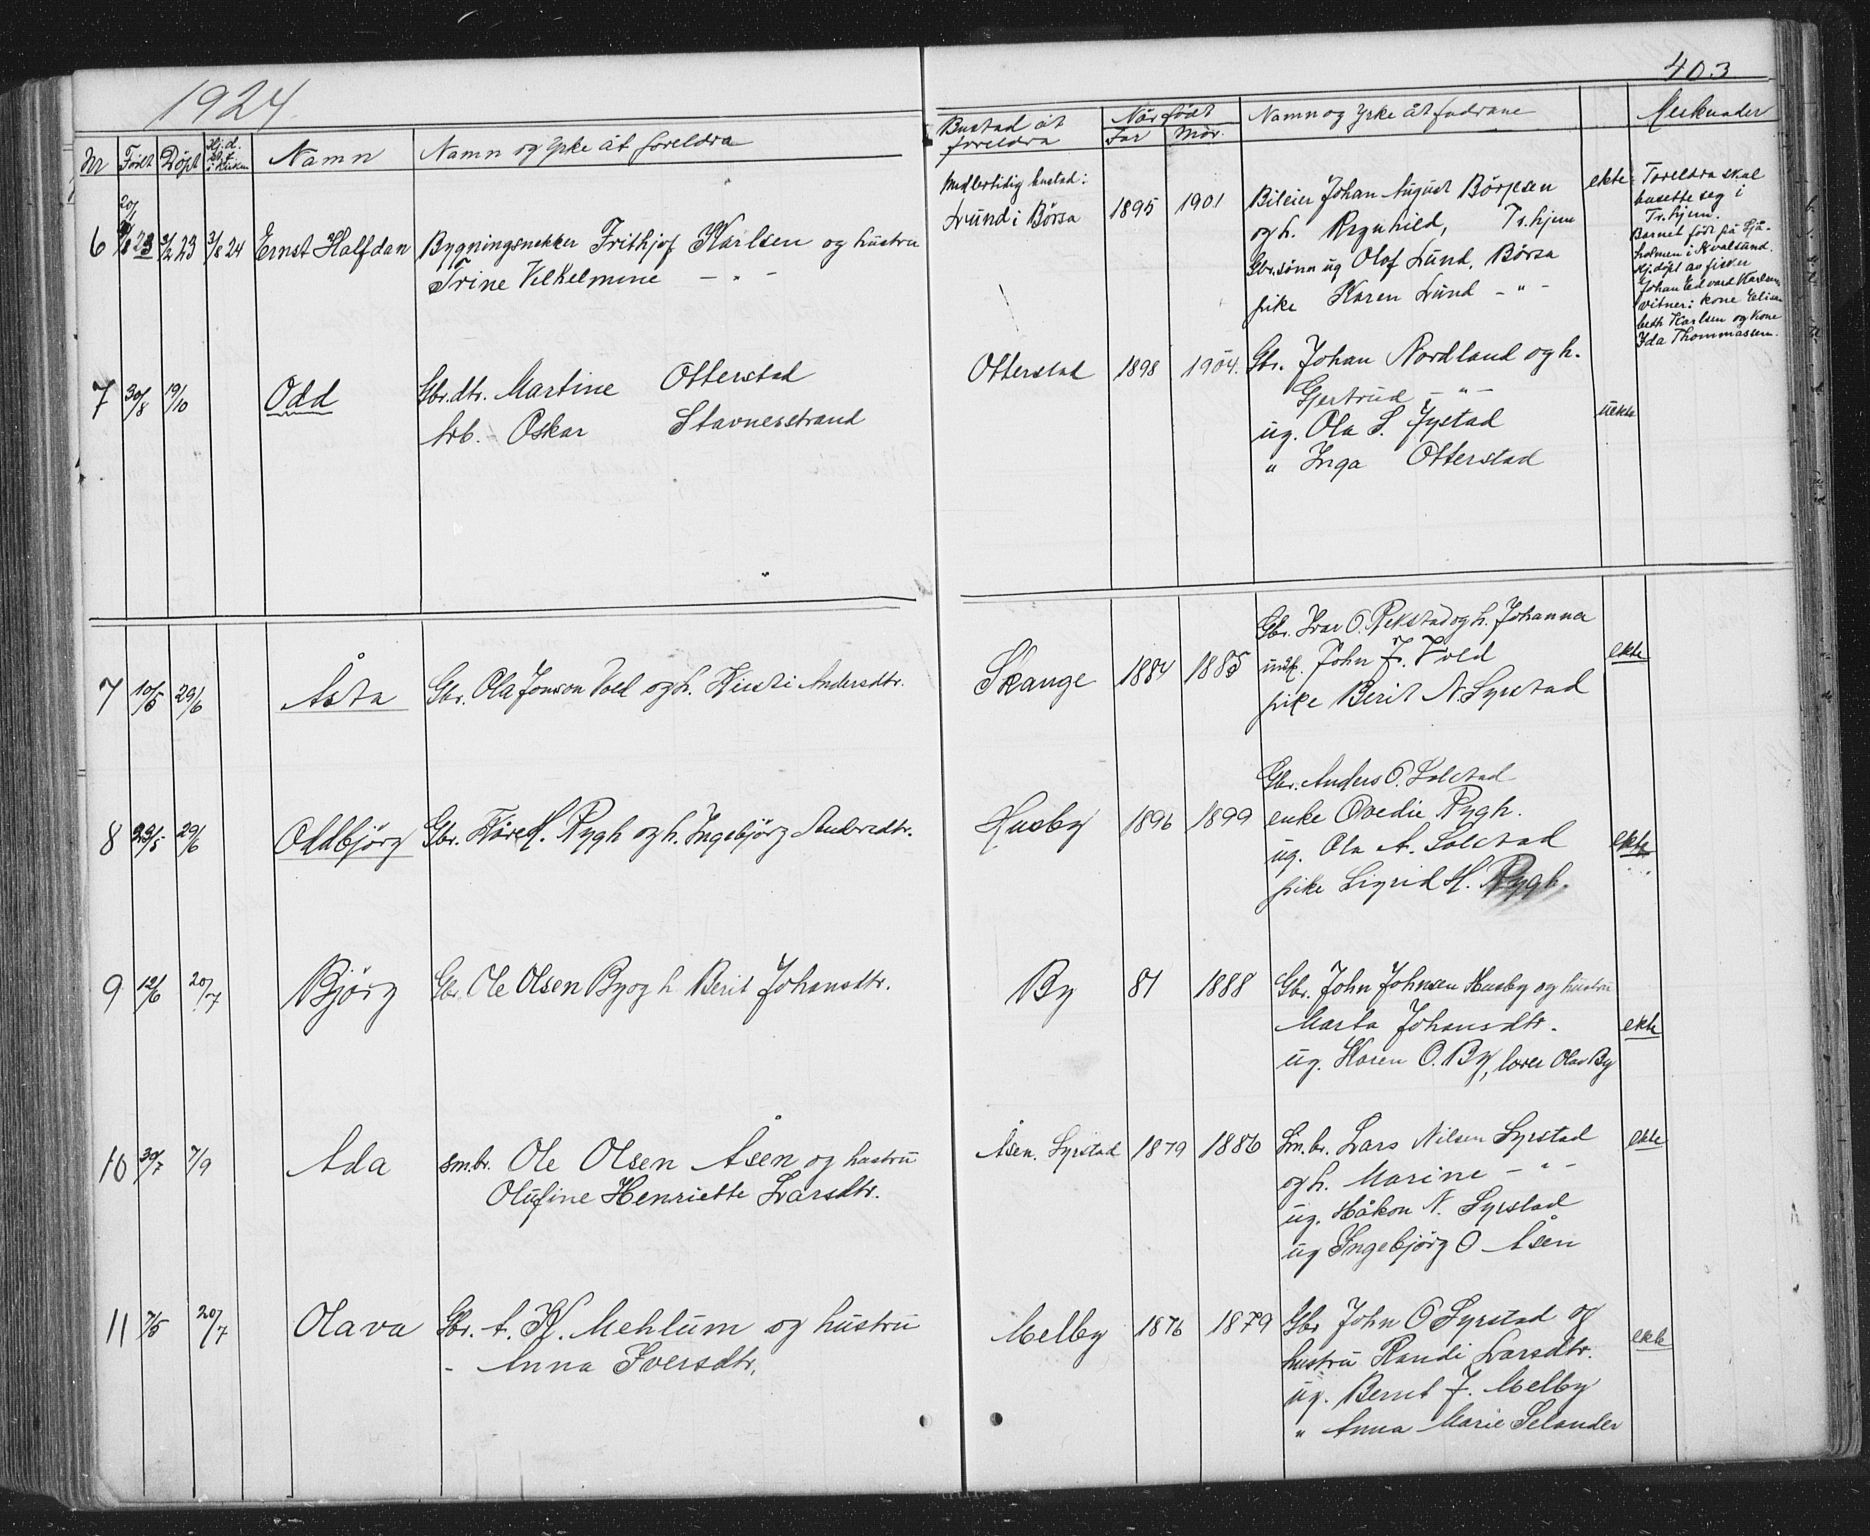 1924.
403
Nr Født Døpt Hj.d. st.f. i kirken Namn Namn og Yrke åt foreldra Bustad åt foreldra Når født Far Mor. Namn og Yrke åt fadrane Merknader
6 20/8 23 3/2 23 3/8 24 Ernst Halfdan Bygningsnekker Frithjof Karlsen og hustru
Trine Vilhelmine - " -
Midlertidig bustad:
Lund i Børsa 1895 1901
Bileier Johan August Børjesen
og h. Ragnhild, Tr.hjem
Gbr.sønn ug Olof Lund, Børsa
pike Karen Lund - " -
ekte
Foreldra skal
busette seg i
Tr.hjem.
Barnet født på Sjå-
holmen i Kvalsund.
Hj.døpt av fisker
Johan Edvard Karlsen,
vitner: kone Elisa-
beth Karlsen og kone
Ida Thommassen.
7 30/8 19/10 Odd Gbr.dtr. Martine Otterstad
Arb. - Oskar Stavnesstrand
Otterstad 1898 1904.
Gbr. Johan Nordland og h.
Gjertrud - " -
ug. Ola L. Fystad
" Inga Otterstad
uekte
7 10/5 29/6 Åsta Gbr. Ola Jonson Vold og h. Kirsti Andersdtr.
Skauge 1884 1885
Gbr. Ivar O. Rekstad og h. Johanna
undk. John J. Vold
pike Berit N. Syrstad
ekte
8 29/5 29/6 Oddbjørg Gbr. Kåre H. Rygh og h. Ingebjørg Andersdtr.
Husby 1896 1899
Gbr. Anders O. Solstad
enke Ovedie Rygh.
ug. Ola A. Solstad
pike Sigrid H. Rygh.
ekte
9 12/6 20/7 Bjørg Gbr. Ole Olsen By og h Berit Johansdtr.
By 81 1888
Gbr. John Johnsen Husby og hustru
Marta Johansdtr.
ug. Karen O. By, lærer Olav By
ekte
10 30/7 7/9 Ada sm.br. Ole Olsen Åsen og hustru
Olufine Henriette Larsdtr.
Åsen, Syrstad 1879 1886
Sm.br. Lars Nilsen Syrstad
og h. Marine - " -
ug. Håkon N. Syrstad
ug Ingebjørg O Åsen
ekte
11 7/5 20/7 Olava Gbr. A. K. Mehlum og hustru
- Anna Iversdtr.
Melby 1876 1879
Gbr John O Syrstad og
hustru Randi Larsdtr.
ug. Bernt J. Melby
" Anna Marie Selander
ekte